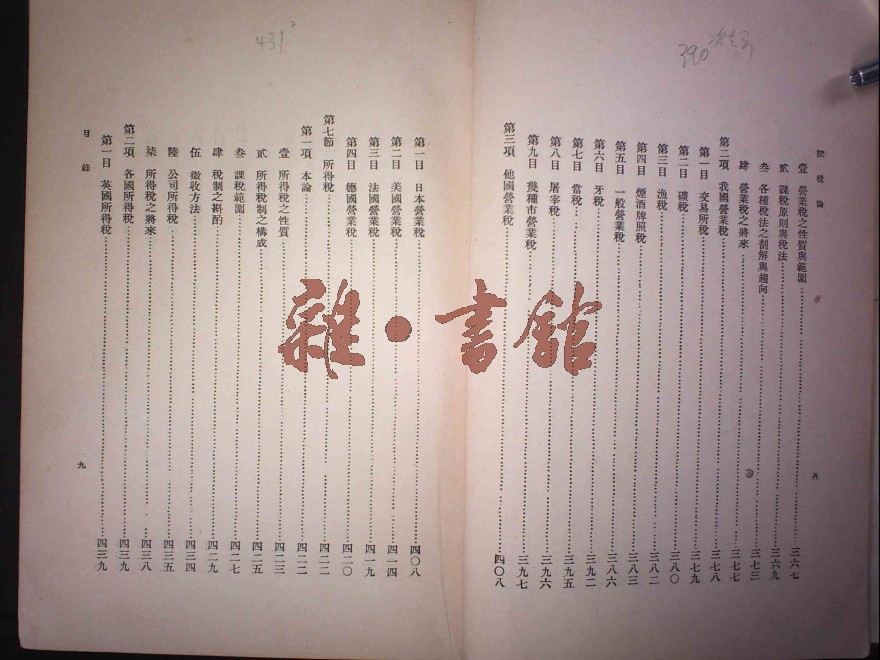 賦稅論
壹 營業稅之性質與範圍……三六七
貳 課稅原則與稅法……三六九
叁 各種稅法之剖解與趨向……三七三
肆 營業稅之將來……三七七
第二項 我國營業稅……三七八
第一目 交易所稅……三七九
第二目 礦稅……三八〇
第三目 漁稅……三八二
第四目 煙酒牌照稅……三八三
第五目 一般營業稅……三八六
第六目 牙稅……三九二
第七目 當稅……三九五
第八目 屠宰稅……三九六
第九目 幾種市營業稅……三九七
第三項 他國營業稅……四〇八
八
390
431
第一目 日本營業稅……四〇八
第二目 美國營業稅……四一四
第三目 法國營業稅……四一九
第四目 德國營業稅……四二〇
第七節 所得稅……四二二
第一項 本論……四二二
壹 所得稅之性質……四二三
貳 所得稅制之構成……四二五
叁 課稅範圍……四二七
肆 稅制之斟酌……四二九
伍 徵收方法……四三四
陸 公司所得稅……四三五
柒 所得稅之將來……四三八
第二項 各國所得稅……四三九
第一目 英國所得稅……四三九
目錄
九
雜·書館